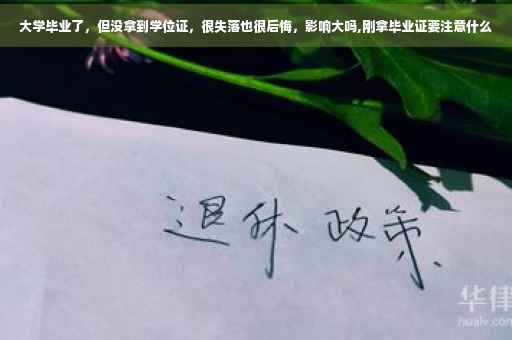 大学毕业了，但没拿到学位证，很失落也很后悔，影响大吗,刚拿毕业证要注意什么
退休 政策
华律
hualv.com